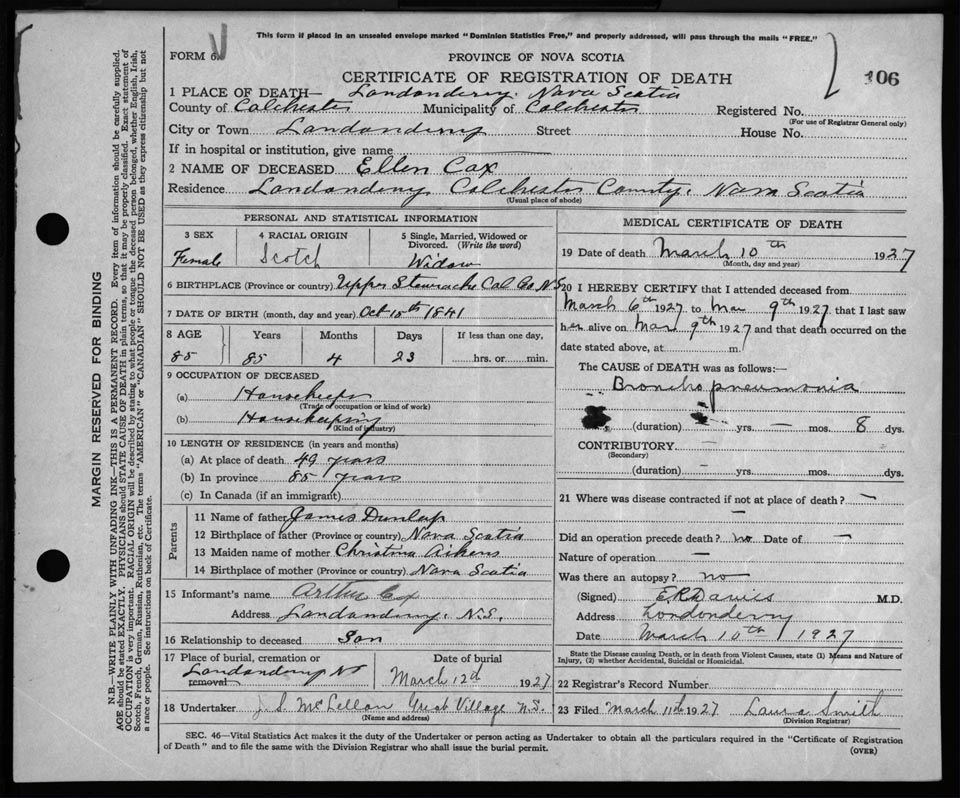 This form if placed in an unsealed envelope marked "Dominion Statistics Free," and properly addressed, will pass through the mails "FREE."
FORM 6.
PROVINCE OF NOVA SCOTIA
CERTIFICATE OF REGISTRATION OF DEATH
106
1 PLACE OF DEATH— Londonderry. Nova Scotia
County of Colchester Municipality of Colchester Registered No.
(For use of Registrar General only)
City or Town Londonderry Street House No.
If in hospital or institution, give name
2 NAME OF DECEASED Ellen Cox
Residence Londonderry Colchester County. Nova Scotia
(Usual place of abode)
PERSONAL AND STATISTICAL INFORMATION
3 SEX
Female
4 RACIAL ORIGIN
Scotch
5 Single, Married, Widowed or Divorced. (Write the word)
Widow
6 BIRTHPLACE (Province or country) Upper Stewiacke Col Co. N.S.
7 DATE OF BIRTH (month, day and year) Oct 15th 1841
8 AGE Years Months Days If less than one day,
85 85 4 23 hrs. or min.
9 OCCUPATION OF DECEASED
(a) Housekeeper
(Trade or occupation or kind of work)
(b) Housekeeping
(Kind of industry)
10 LENGTH OF RESIDENCE (in years and months)
(a) At place of death 49 years
(b) In province 85 years
(c) In Canada (if an immigrant)
Parents
11 Name of father James Dunlap
12 Birthplace of father (Province or country) Nova Scotia
13 Maiden name of mother Christina Aikens
14 Birthplace of mother (Province or country) Nova Scotia
15 Informant's name Arthur Cox
Address Londonderry. N.S.
16 Relationship to deceased Son
17 Place of burial, cremation or removal
Londonderry NS
Date of burial
March 12th 1927
18 Undertaker J. S. McLellan Great Village N.S.
(Name and address)
MEDICAL CERTIFICATE OF DEATH
19 Date of death March 10th 1927
(Month, day and year)
20 I HEREBY CERTIFY that I attended deceased from
March 6th 1927 to Mar 9th 1927 that I last saw
her alive on Mar 9th 1927 and that death occurred on the
date stated above, at m.
The CAUSE of DEATH was as follows:—
Broncho pneumonia
(duration) yrs. — mos. 8 dys.
CONTRIBUTORY. —
(Secondary)
(duration) — yrs. mos. dys.
21 Where was disease contracted if not at place of death? —
—
Did an operation precede death? no Date of —
Nature of operation —
Was there an autopsy? no
(Signed) E.R. Davies M.D.
Address Londonderry
Date March 10th 1927
State the Disease causing Death, or in death from Violent Causes, state (1) Means and Nature of
Injury, (2) whether Accidental, Suicidal or Homicidal.
22 Registrar's Record Number
23 Filed March 11th 1927 Laura Smith
(Division Registrar)
SEC. 46—Vital Statistics Act makes it the duty of the Undertaker or person acting as Undertaker to obtain all the particulars required in the "Certificate of Registration
of Death" and to file the same with the Division Registrar who shall issue the burial permit.
(OVER)
MARGIN RESERVED FOR BINDING
N.B.—WRITE PLAINLY WITH UNFADING INK—THIS IS A PERMANENT RECORD. Every item of information should be carefully supplied.
AGE should be stated EXACTLY. PHYSICIANS should STATE CAUSE OF DEATH in plain terms, so that it may be properly classified. Exact statement of
OCCUPATION is very important. RACIAL ORIGIN will be described by stating to what people or tongue the deceased person belonged, whether English, Irish,
Scotch, French, German, Russian, Ruthenian, etc. The terms "AMERICAN" or "CANADIAN" SHOULD NOT BE USED as they express citizenship but not
a race or people. See instructions on back of Certificate.